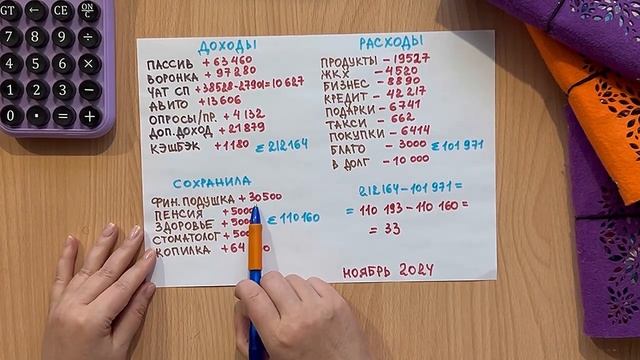 ДОХОДЫ
ПАССИВ + 63460
ВОРОНКА + 97280
ЧАТ СП +38528-27901=10627
АВИТО +13606
ОПРОСЫ/ПР. + 4132
ДОП.ДОХОД +21879
КЭШБЭК +1180 Σ 212164
РАСХОДЫ
ПРОДУКТЫ - 19527
ЖКХ - 4520
БИЗНЕС - 8890
КРЕДИТ - 42217
ПОДАРКИ - 6741
ТАКСИ - 662
ПОКУПКИ - 6414
БЛАГО - 3000 Σ 101971
В ДОЛГ - 10 000
СОХРАНИЛА
ФИН. ПОДУШКА + 30500
ПЕНСИЯ
ЗДОРОВЬЕ Σ 110160
СТОМАТОЛОГ
КОПИЛКА
212164-101971 =
= 110 193-110 160 =
= 33
НОЯБРЬ 2024
GT ← CE ON/C
7 8 9 ÷
4 5 6 ×
1 2 3 −
0 · = +